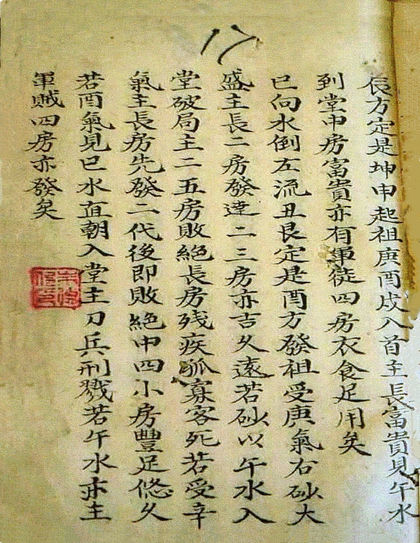 17
辰方定是坤申起祖庚酉戍入首主長富貴見午水
到堂中房富貴亦有軍徒四房衣食足用矣
巳向水倒左流丑艮定是酉方發祖受庚氣右砂大
盛主長二房發達二三房亦吉久遠若砂以午水入
堂破局主二五房敗絕長房残疾孤寡客死若受辛
氣主長房先發二代後即敗絕中四小房豐足悠久
若酉氣見巳水直朝入堂主刀兵刑戮若午水亦主
軍賊四房亦發矣